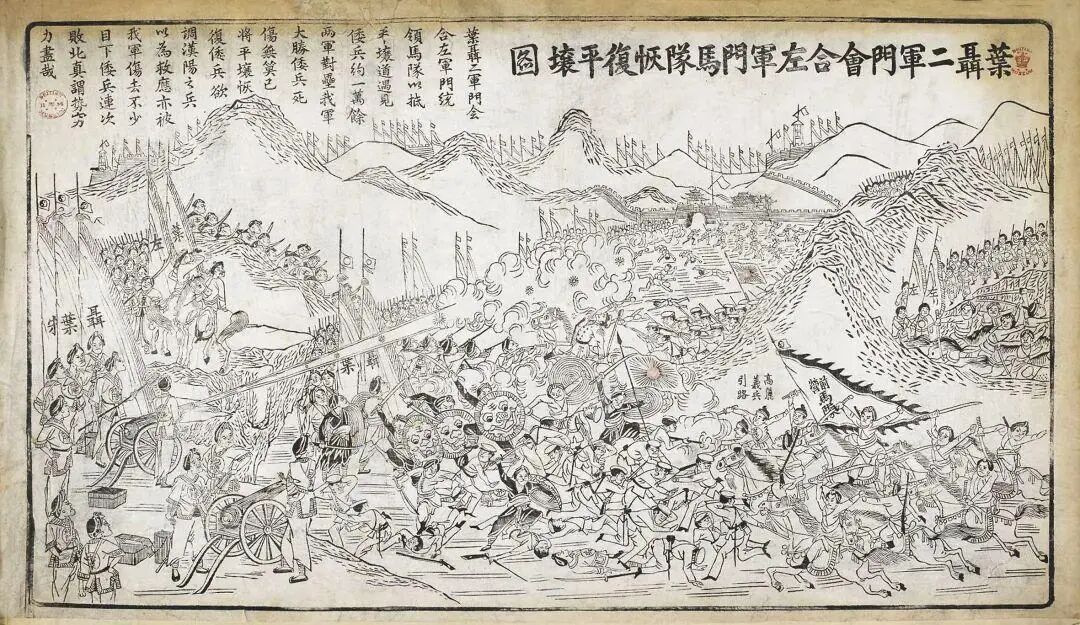 葉聶二軍門會合左軍門馬隊恢復平壤圖
葉聶二軍門会
合左軍門統
領馬隊以抵
平壤道遇見
倭兵約一萬餘
兩軍對壘我軍
大勝倭兵死
傷無算已
將平壤恢
復倭兵欲
調漢陽之兵
以為救應亦被
我軍傷去不少
目下倭兵連次
敗北真謂势窮
力盡哉
葉
左
聶
葉
聶
葉
左
高麗
義兵
引路
馬兵